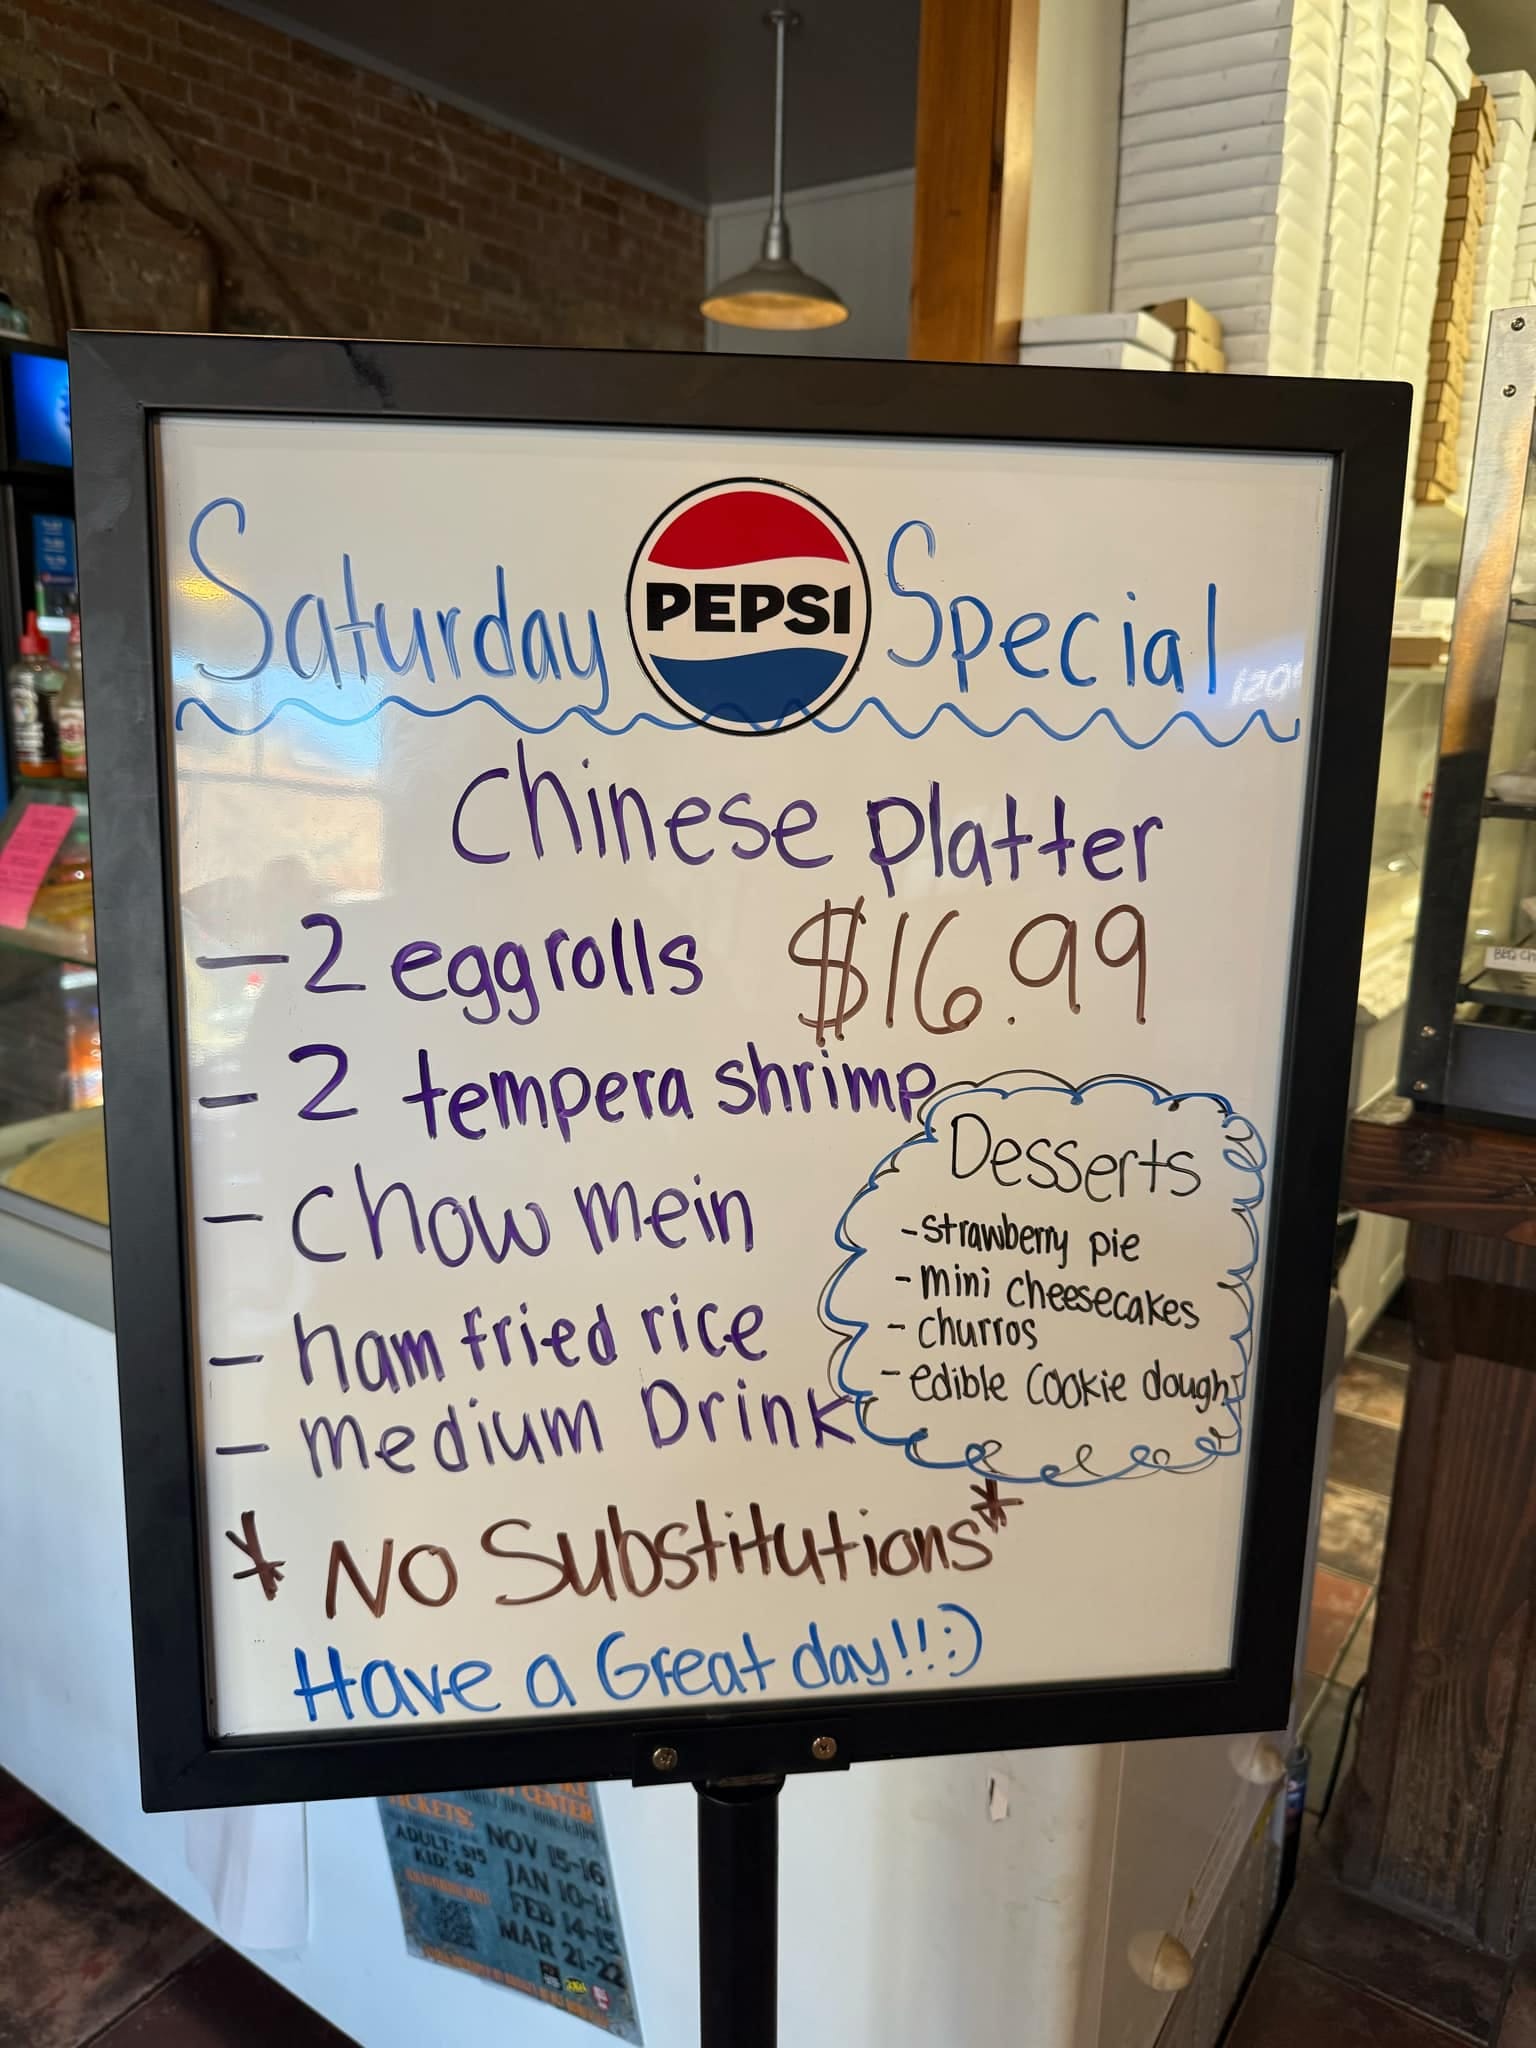 Saturday PEPSI Special
Chinese Platter
- 2 eggrolls $16.99
- 2 tempera shrimp
- Chow mein
- ham fried rice
- medium Drink
Desserts
- strawberry pie
- mini cheesecakes
- churros
- edible cookie dough
* NO Substitutions *
Have a Great day!!:)
CENTER
TICKETS:
ADULT: $15
KID: $8
NOV 15-16
JAN 10-11
FEB 14-15
MAR 21-22